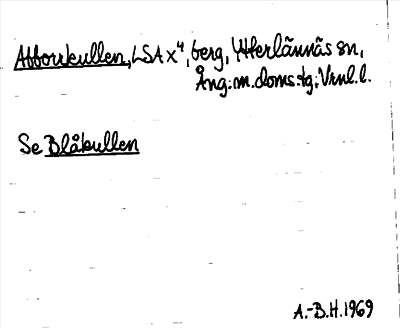 Abborrkullen, LSA x⁴, berg, Ytterlännäs sn,
Ång:m. doms.tg; Vrnl. l.
Se Blåkullen
A.-B.H. 1969